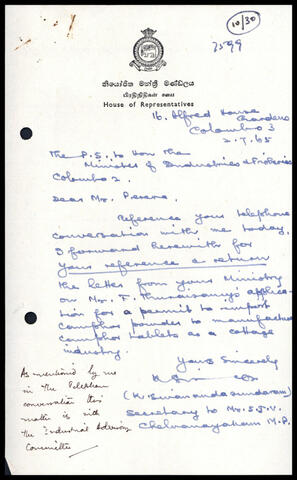 10/30
2599
නියෝජිත මන්ත්‍රී මණ්ඩලය
பிரதிநிதிகள் சபை
House of Representatives
16, Alfred House
Gardens
Colombo 3
2.7.65
The P.S. to Hon the
Minister of Industries & Fisheries
Colombo 2.
Dear Mr. Perera,
Reference your telephone
conversation with me today,
I forward herewith for
your reference & return
the letter from your Ministry
on Mr. T. Thuraisamy's applica-
tion for a permit to import
camphor powder to manufacture
camphor tablets as a cottage
industry.
Yours Sincerely
(K. Sivananda sundaram)
Secretary to Mr. S.J.V.
Chelvanayakam M.P.
As mentioned by me
in the telephone
conversation this
matter is with
the Industrial Advisory
Committee